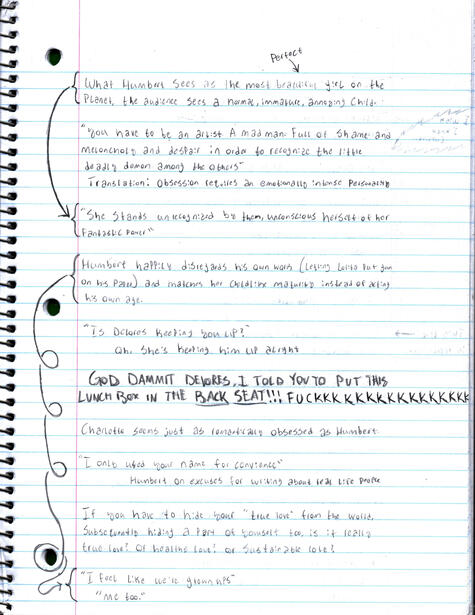 Perfect
What Humbert sees as the most beautiful girl on the
Planet, the audience sees a normal, immature, annoying Child.
"You have to be an artist A madman: Full of Shame and
meloncholy and despair in order to recognize the little
deadly demon among the others"
Translation: Obsession requires an emotionally intense Personality
"She Stands unrecognized by them, unconscious herself of her
Fantastic Power"
Humbert happily disregards his own work (Letting Lolita Put gum
on his Paper) and matches her childlike maturity instead of acting
his own age.
"Is Delores keeping you up?"
Oh, She's keeping him up alright
GOD DAMMIT DELORES, I TOLD YOU TO PUT THIS
LUNCH BOX IN THE BACK SEAT!!! FUCKKKKKKKKKKKKKKKKKK
Charlotte seems just as romantically obsessed as Humbert.
"I only used your name for convience"
Humbert on excuses for writing about real life people
If you have to hide your "true love" from the world,
Subsequently hiding a Part of yourself too, is it really
true love? Or healthy love? or Sustainable love?
"I feel like we're grown ups"
"me too."